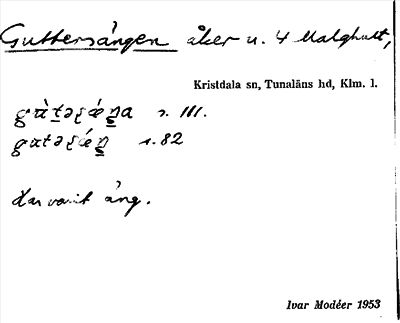 Guttersängen åker u. 4 Malghult,
Kristdala sn, Tunaläns hd, Klm. l.
s. 111.
s. 82
Har varit äng.
Ivar Modéer 1953